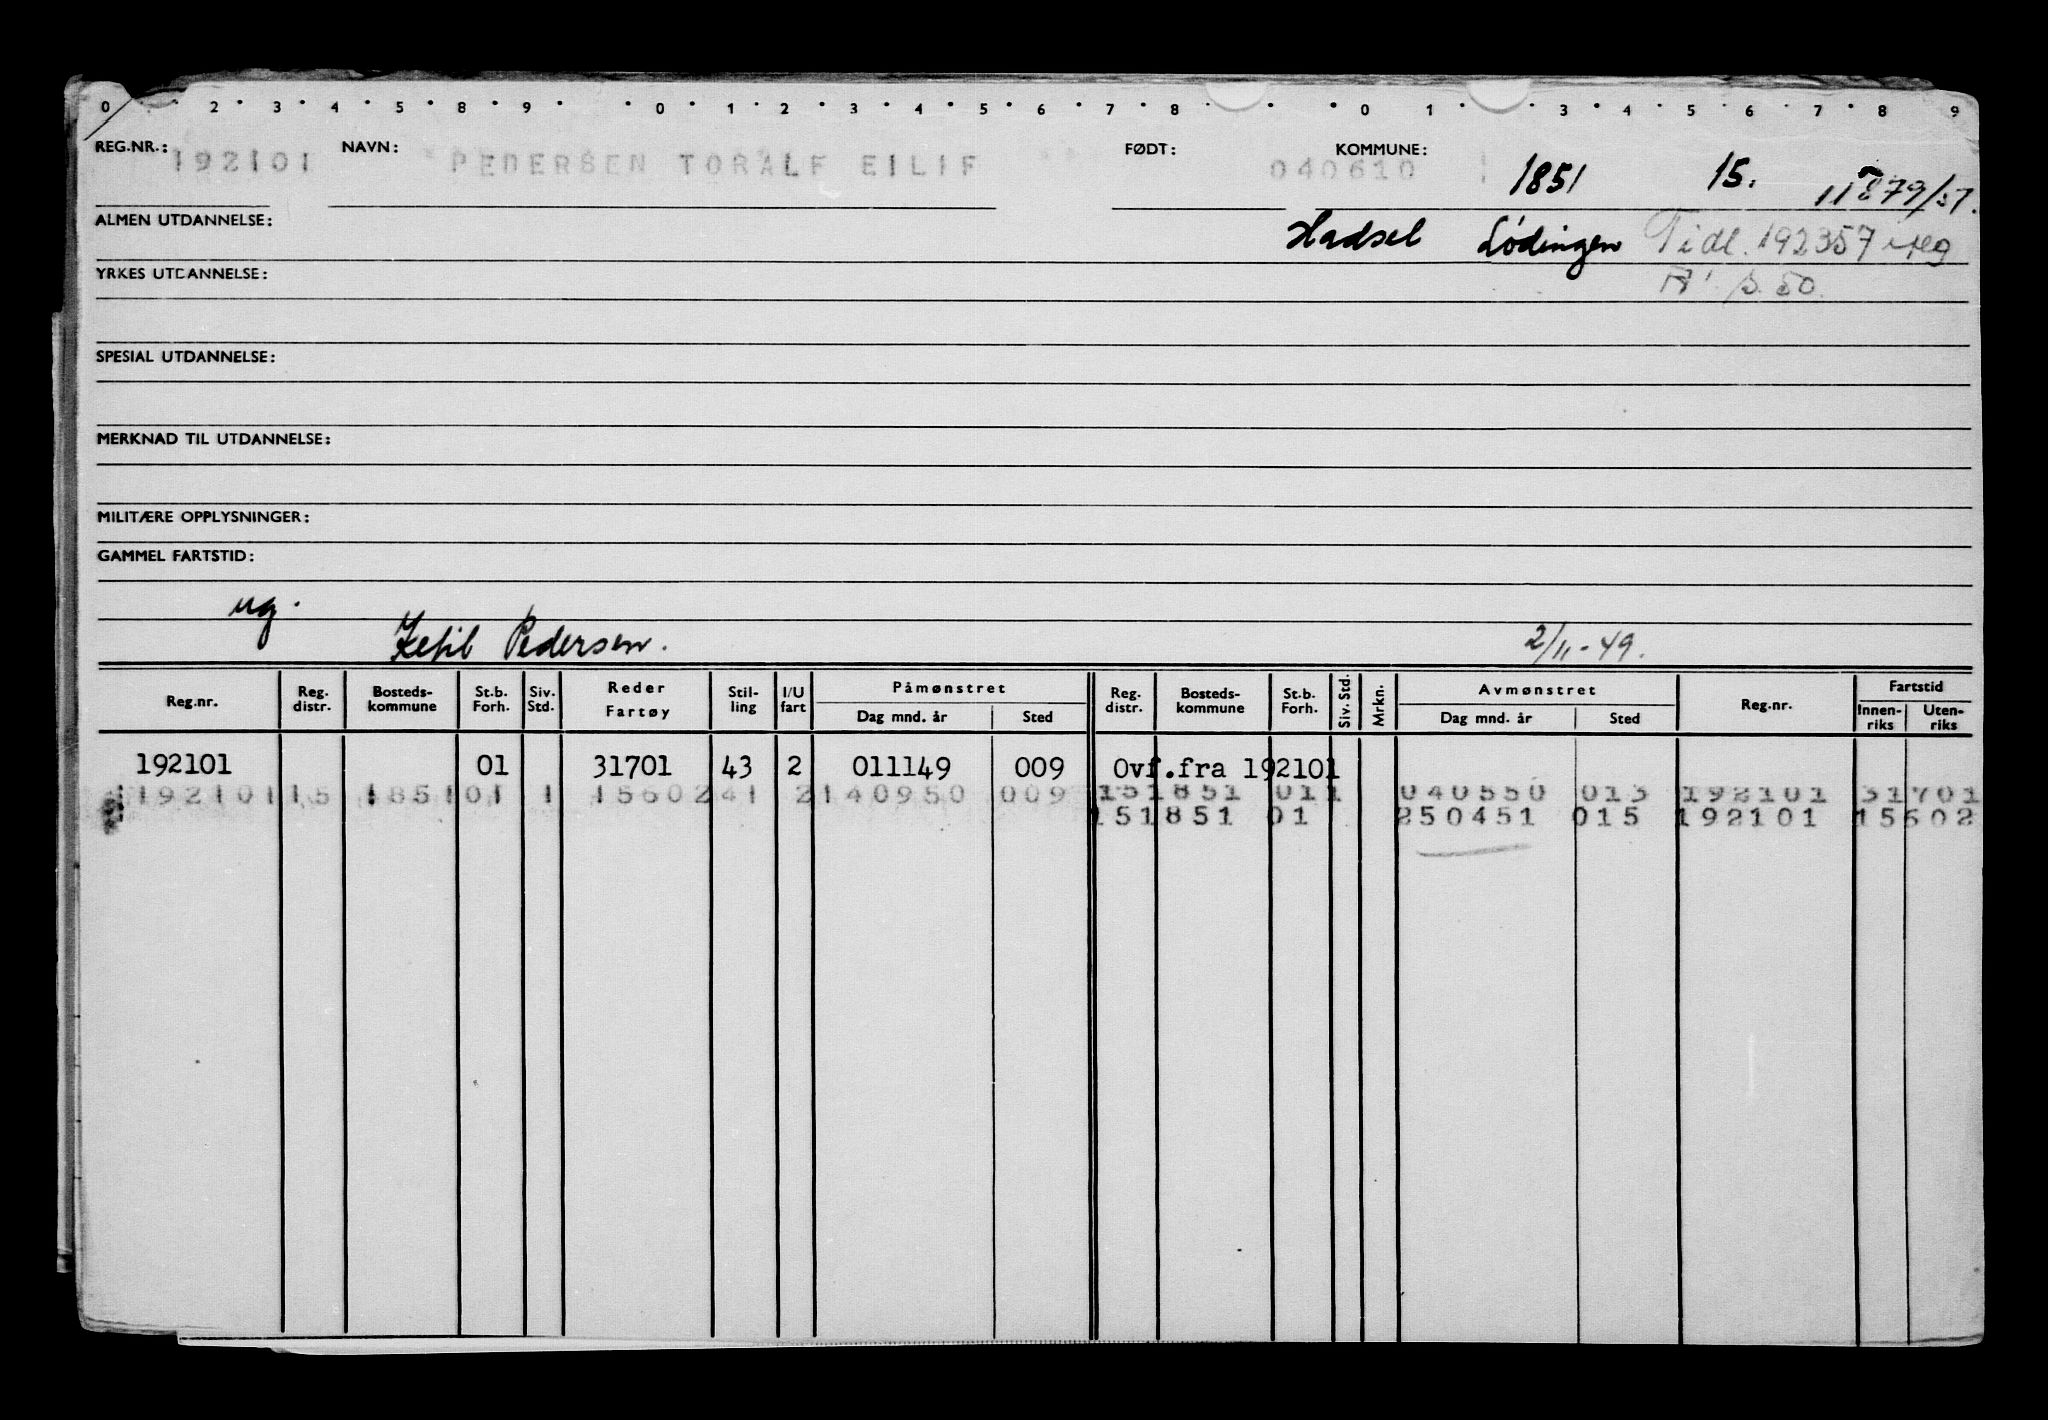 0 2 3 4 5 8 9 0 1 2 3 4 5 6 7 8 0 1 3 4 5 6 7 8 9
REG.NR.: 192101 NAVN: PEDERSEN TORALF EILIF FØDT: 040610 KOMMUNE: 1851 15.
ALMEN UTDANNELSE: Hadsel Lødingen Tidl. 192357
YRKES UTDANNELSE:
SPESIAL UTDANNELSE:
MERKNAD TIL UTDANNELSE:
MILITÆRE OPPLYSNINGER:
GAMMEL FARTSTID:
ug.
Pedersen. 2/11-49.
Reg.nr. Reg. distr. Bosteds-kommune St.b. Forh. Siv. Std. Reder Fartøy Stil-ling I/U fart Påmønstret Dag mnd. år Sted Reg. distr. Bosteds-kommune St.b. Forh. Siv. Std. Mrkn. Avmønstret Dag mnd. år Sted Reg.nr. Fartstid Innen-riks Uten-riks
192101 01 31701 43 2 011149 009 Ovf.fra 192101
192101 15 1851 01 1 15602 41 2 140950 009 15 1851 01 1 040550 013 192101 31701
15 1851 01 250451 015 192101 15602